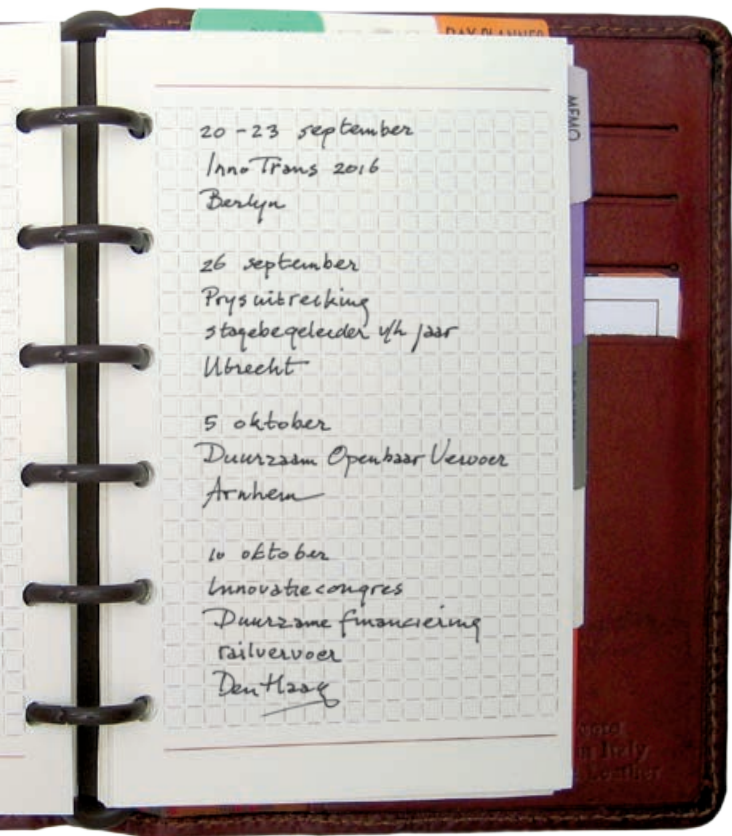 DAY PLANNER
MEMO
20 - 23 september
InnoTrans 2016
Berlyn
26 september
Prysuitreiking
stagebegeleider v/h jaar
Utrecht
5 oktober
Duurzaam Openbaar Vervoer
Arnhem
10 oktober
Innovatiecongres
Duurzame financiering
railvervoer
Den Haag
Italy
Leather